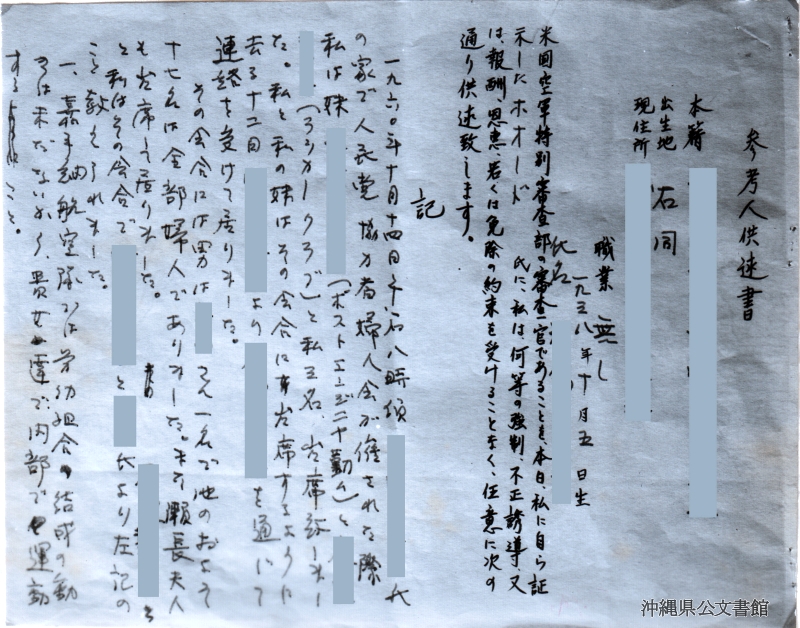 参考人供述書
本籍
出生地 右同
現住所
職業 無し
氏名
一九三八年十月五日生
米国空軍特別審査部の審査官であることを、本日、私に自ら証
示したホオード 氏に、私は何等の強制、不正誘導又
は、報酬、恩恵、若くは免除の約束を受けることなく、任意に次の
通り供述致します。
記
一九六〇年十月十四日午后八時頃 氏
の家で人民党協力者婦人会が催された際
私は妹 (ポストエンジニヤ勤ム)と
(ランカークラブ)と私三名、出席致しまし
た。私と私の妹はその会合に出席するように
去る十二日 より を通じて
連絡を受けて居りました。
その会合には男は さん一名で他のおよそ
十七名は全部婦人でありました。瀬長夫人
も出席して居りました。
と私はその会合で と 氏より左記の
こと教えられました。
一、嘉手納航空隊には労働組合の結成の動
きは未だないから、貴女達で内部で運動
すること。
沖縄県公文書館